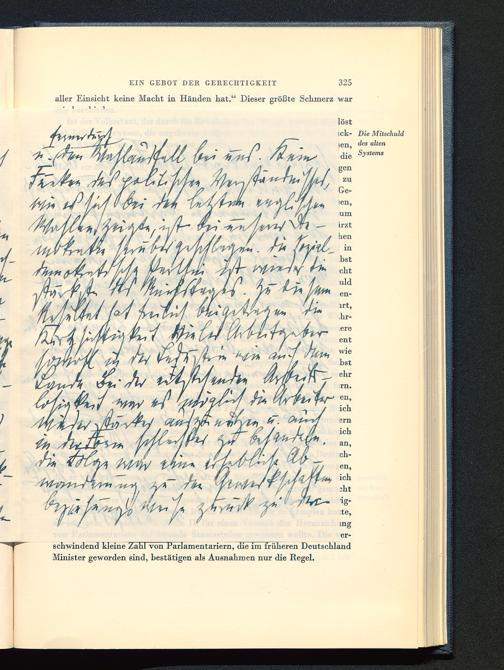 EIN GEBOT DER GERECHTIGKEIT 325
aller Einsicht keine Macht in Händen hat.“ Dieser größte Schmerz war
Die Mitschuld
des alten
Systems
u. den Wahlausfall bei uns. Kein
Funken des politischen Verständnisses,
wie es sich bei den letzten englischen
Wahlen zeigte, ist bei unserer De-
mokratie herübergeschlagen. Die Sozial-
demokratische Partei ist wieder die
stärkste des Reichstages. Zu diesem
Resultat hat freilich beigetragen die
Kurzsichtigkeit vieler Arbeitgeber
sowohl in der Industrie wie auf dem
Lande. Bei der entstehenden Arbeits-
losigkeit war es möglich die Arbeiter
wieder stärker auszunützen u. auch
in der Form schlechter zu behandeln.
Die Folge war eine erhebliche Ab-
wanderung zu den Gewerkschaften
beziehungsweise zurück zu der
löst
ck-
en,
die
gen
zu
Ge-
en,
um
ärzt
hen
in
bst
cht
uld
en-
art,
hr-
ere
ent
wie
bst
ehr
rn.
en,
ich
ern
ich
an,
ch-
en,
ich
cht
ig-
te,
ng
er-
schwindend kleine Zahl von Parlamentariern, die im früheren Deutschland
Minister geworden sind, bestätigen als Ausnahmen nur die Regel.